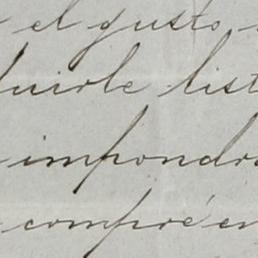 el gusto
luirle list
impondrá
compré en